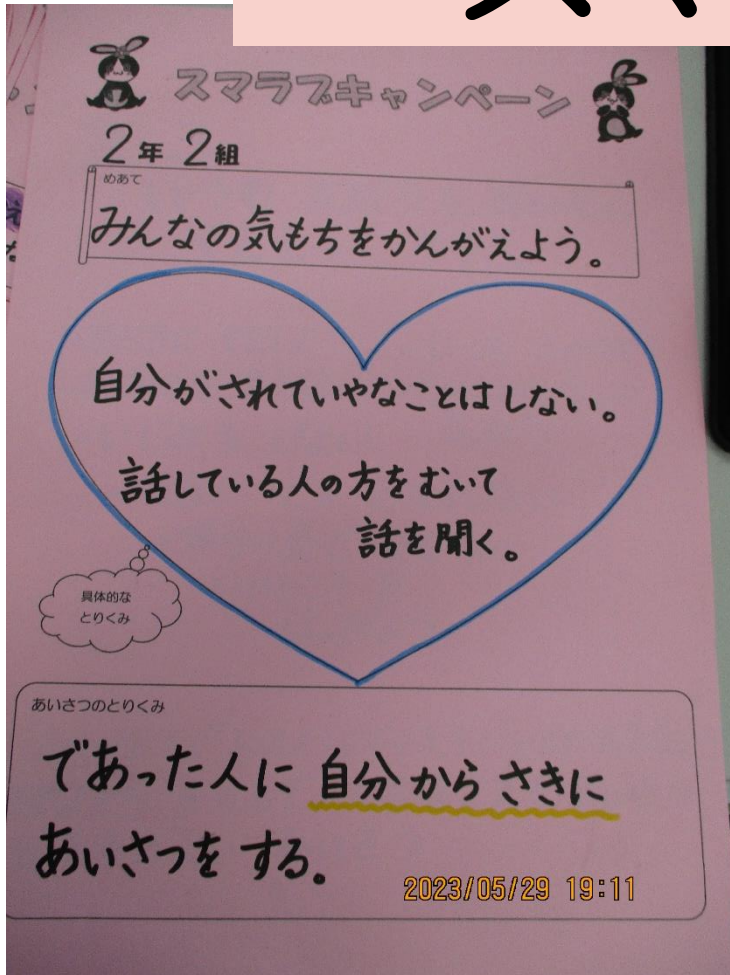 スマラブキャンペーン
2年 2組
めあて
みんなの気もちをかんがえよう。
自分がされていやなことはしない。
話している人の方をむいて
話を聞く。
具体的な
とりくみ
あいさつのとりくみ
であった人に 自分から さきに
あいさつを する。
2023/05/29 19:11